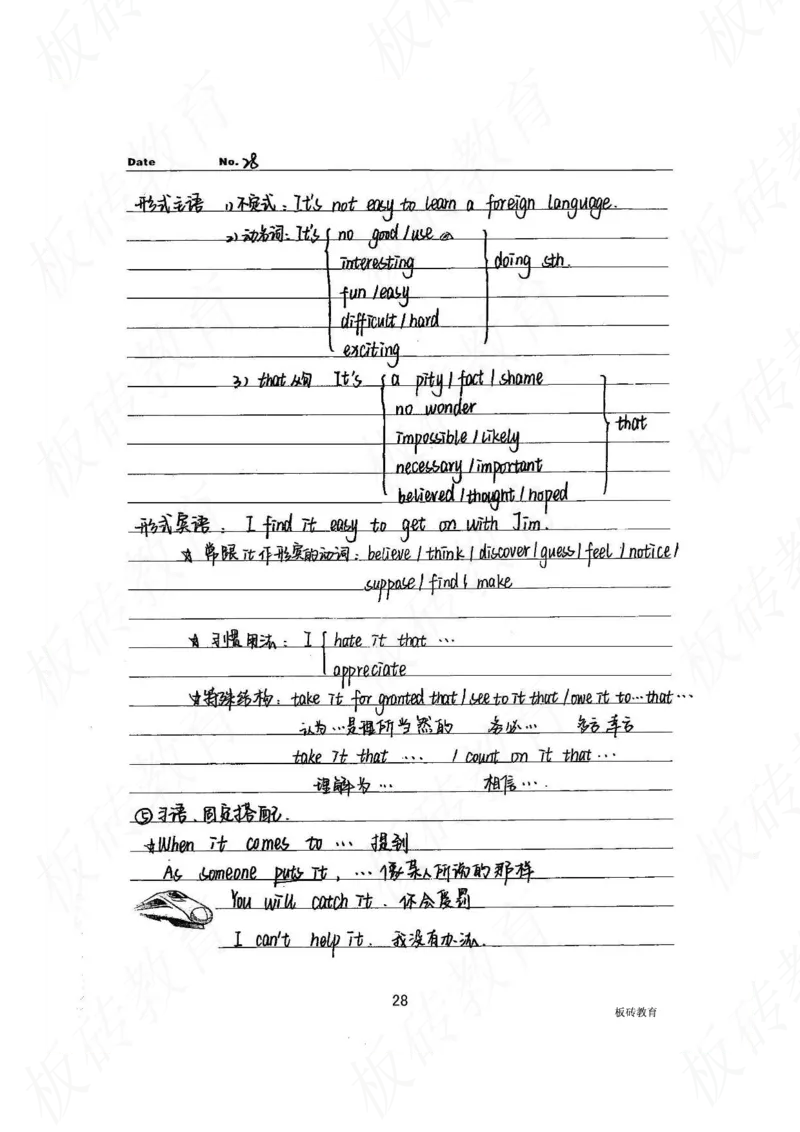 Date No. 28
形式主语 1) 不定式: It's not easy to learn a foreign language.
2) 动名词: It's { no good / use } doing sth.
interesting
fun / easy
difficult / hard
exciting
3) that 从句 It's { a pity / fact / shame } that
no wonder
impossible / likely
necessary / important
believed / thought / hoped
形式宾语: I find it easy to get on with Jim.
☆ 常跟it作形宾的动词: believe / think / discover / guess / feel / notice /
suppose / find / make
☆ 习惯用法: I { hate it that …
appreciate
☆特殊结构: take it for granted that / see to it that / owe it to…that…
认为…是理所当然的 务必…
take it that … / count on it that …
理解为… 相信….
⑤习语、固定搭配.
☆When it comes to … 提到
As someone puts it, … 像某人所说的那样
You will catch it. 你会受罚
I can't help it. 我没有办法.
28
板砖教育